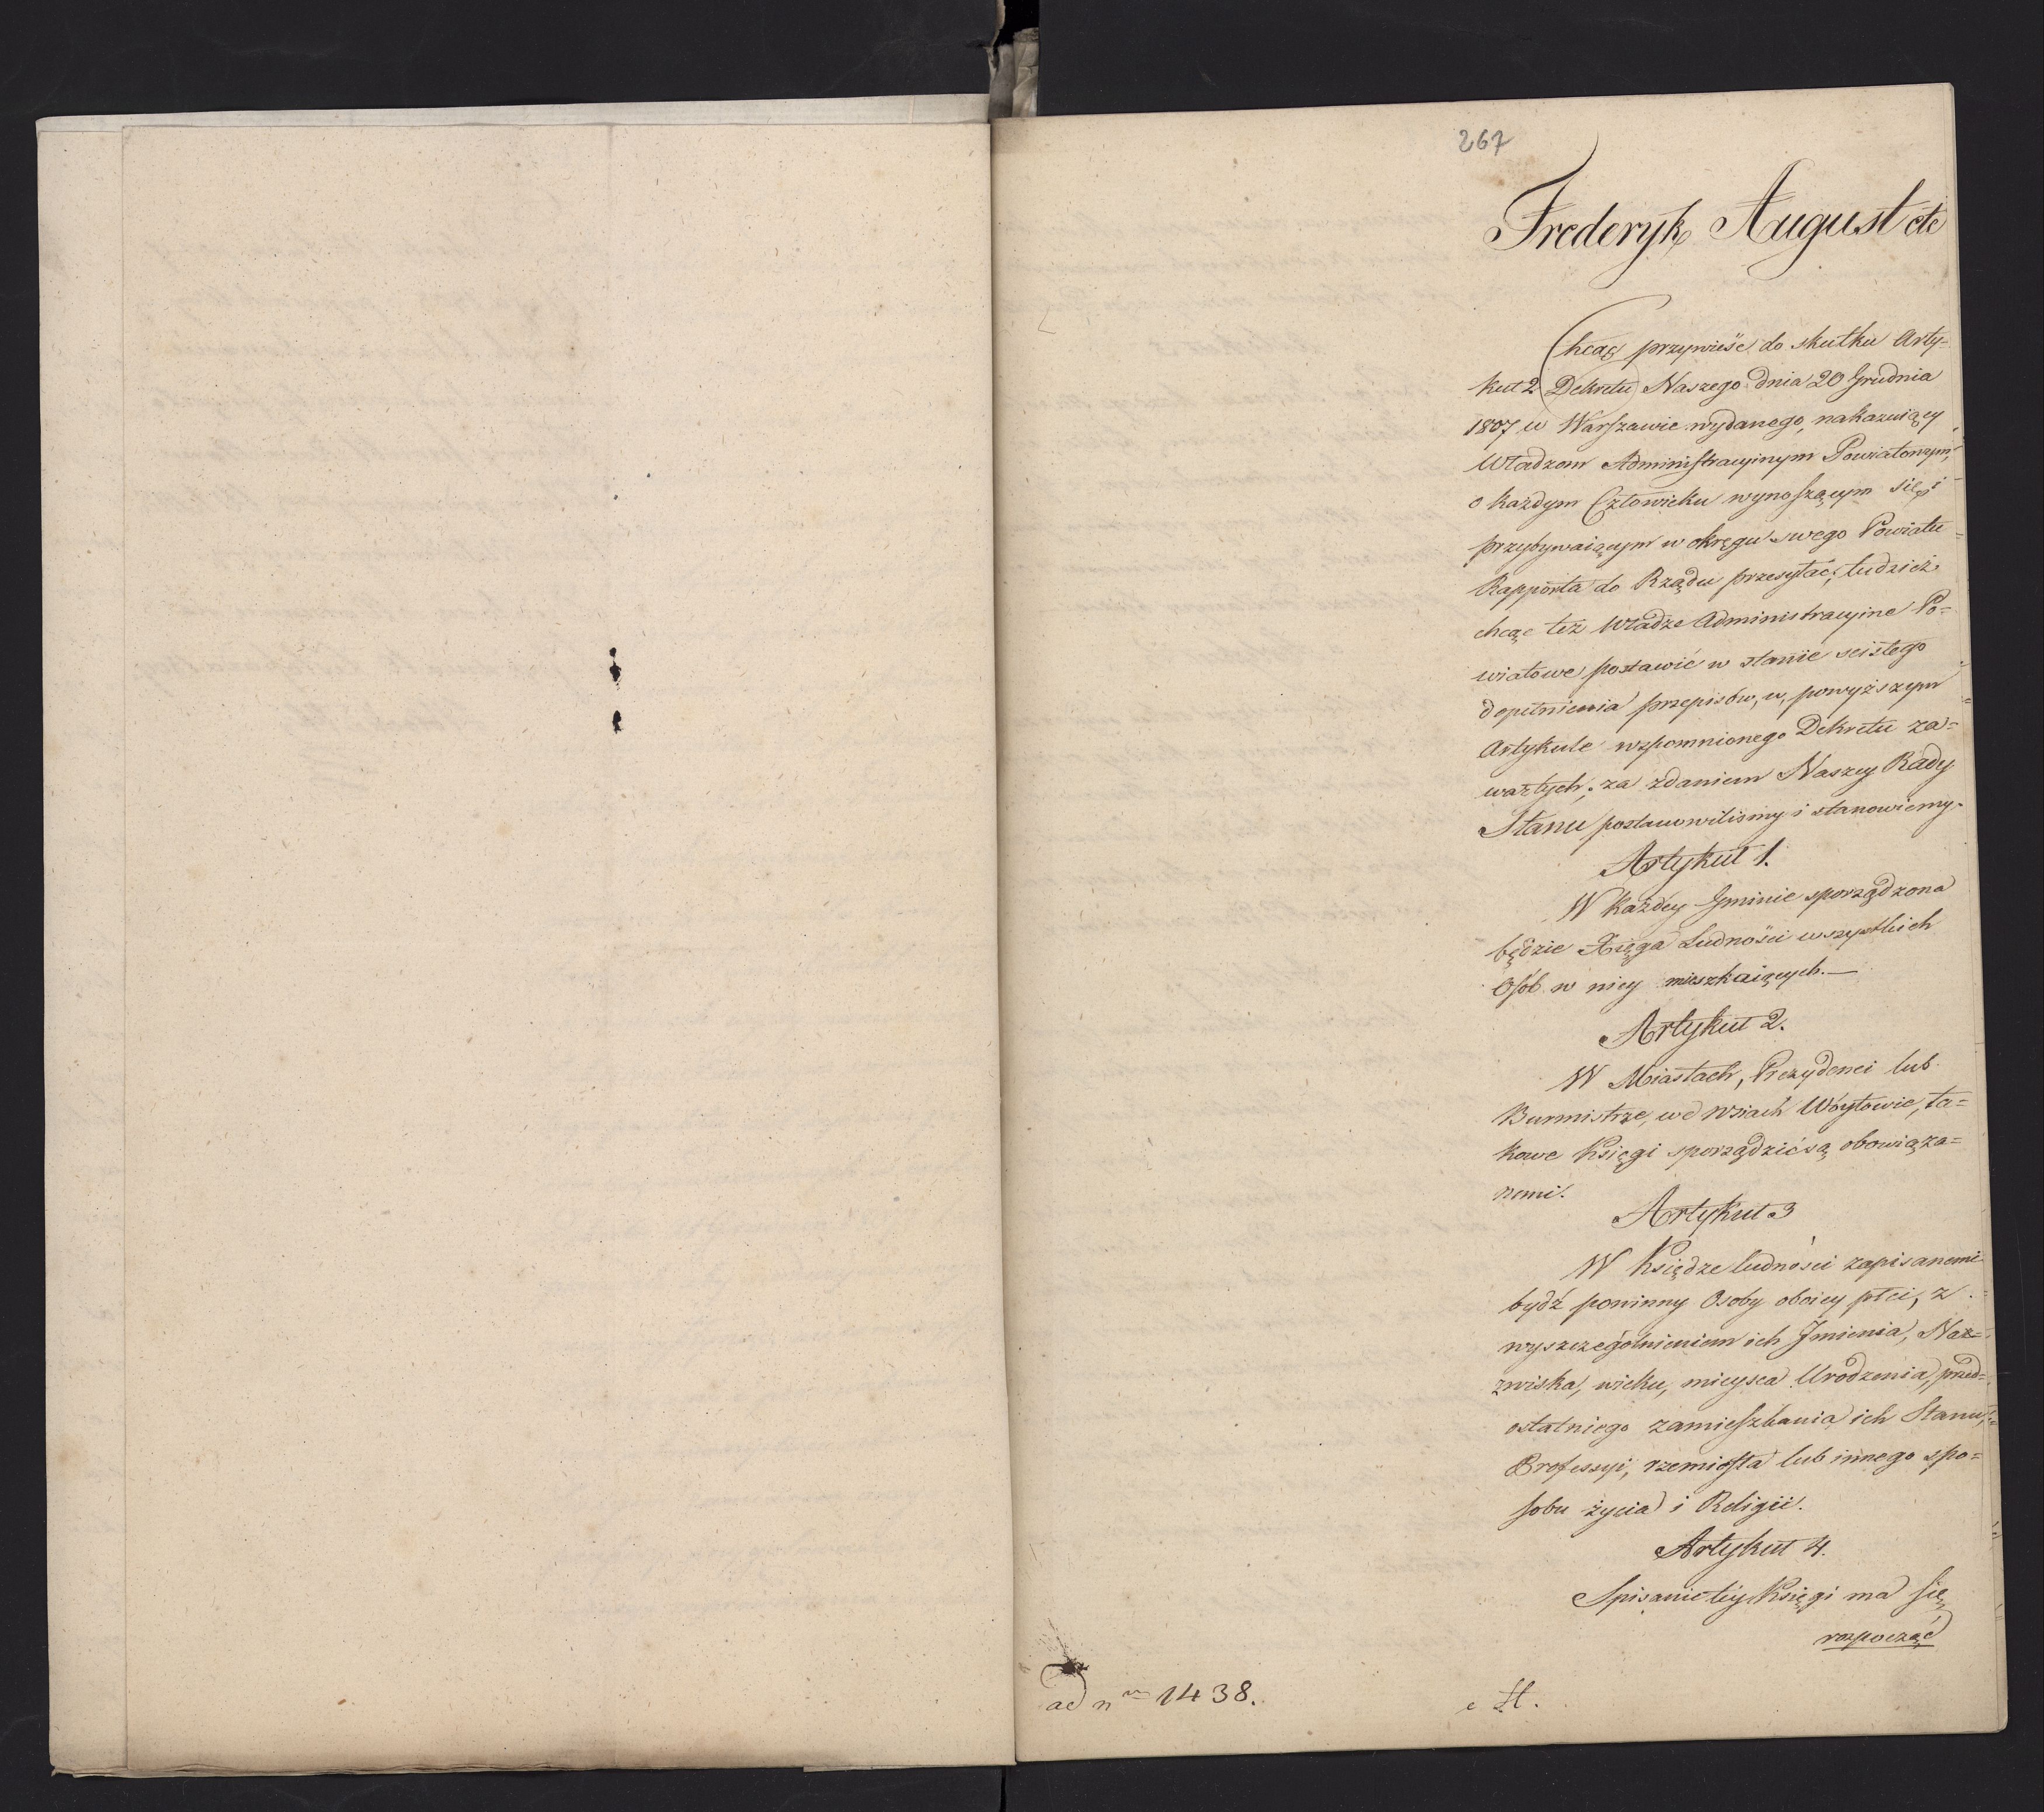 267
Fryderyk August etc
Chcąc przywieść do skutku Arty=
kuł 2 Dekretu Naszego dnia 20 Grudnia
1807 w Warszawie wydanego, nakazuiący
Władzom Administracyinym Powiatowym,
o każdym Człowieku wynoszącym się i
przybywaiącym w okręgu swego Powiatu
Rapporta do Rządu przesyłać, tudzież
chcąc też Władze Administracyine Po=
wiatowe postawić w stanie scisłego
dopełnienia przepisów, w powyższym
Artykule wspomnionego Dekretu za=
wartych; za zdaniem Naszey Rady
Stanu postanowilismy i stanowiemy.
Artykuł 1.
W każdey Gminie sporządzona
będzie Xięga Ludności wszystkich
Osób w niey mieszkaiących.—
Artykuł 2.
W Miastach, Prezydenci lub
Burmistrze, we wsiach Wóytowie, ta=
kowe Księgi sporządzić są obowiąza=
nemi.
Artykuł 3
W Księdze ludności zapisanemi
bydź powinny Osoby oboiey płci, z
wyszczególnieniem ich Jmienia, Naz=
zwiska, wieku, mieysca Urodzenia, przed=
ostatniego zamieszkania ich Stanu,
Professyi, rzemiosła lub innego spo=
sobu życia i Religii.
Artykuł 4.
Spisanie téy Księgi ma się
rozpocząć
ad nm 1438.